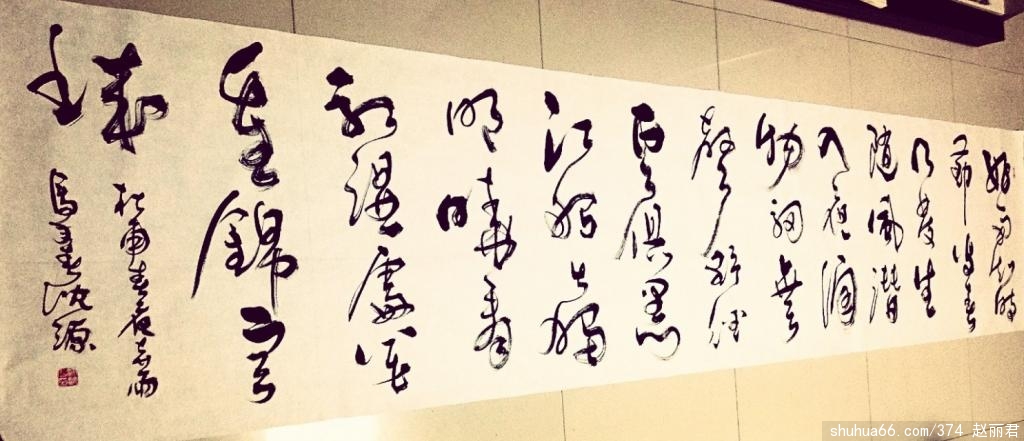 好雨知时
節当春
乃發生
随風潜
入夜润
物細無
聲野径
雲俱黑
江船火獨
明曉看
红濕處花
重錦官
城
杜甫春夜喜雨
shuhua66.com/374 赵丽君